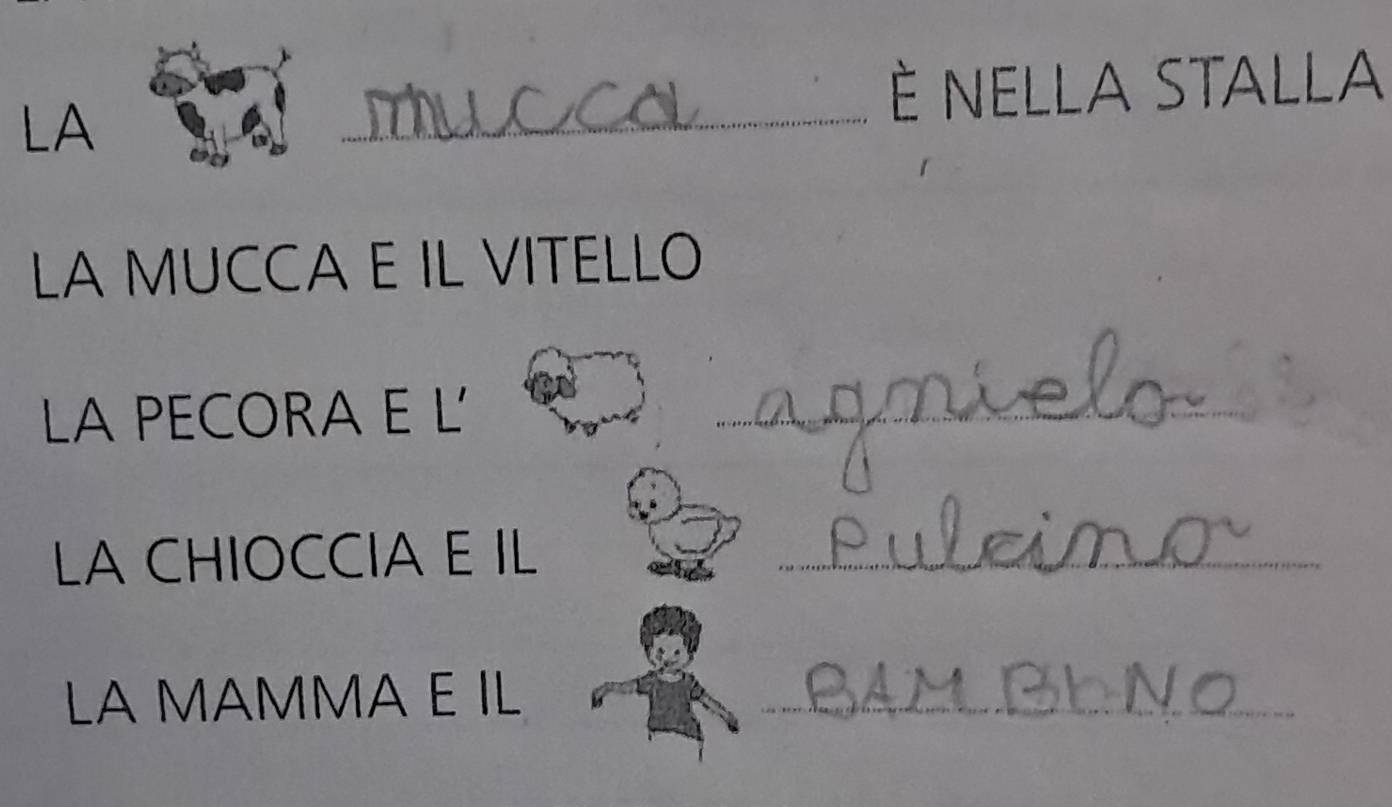 LA mucca È NELLA STALLA
LA MUCCA E IL VITELLO
LA PECORA E L' agnielo
LA CHIOCCIA E IL pulcino
LA MAMMA E IL BAMBINO